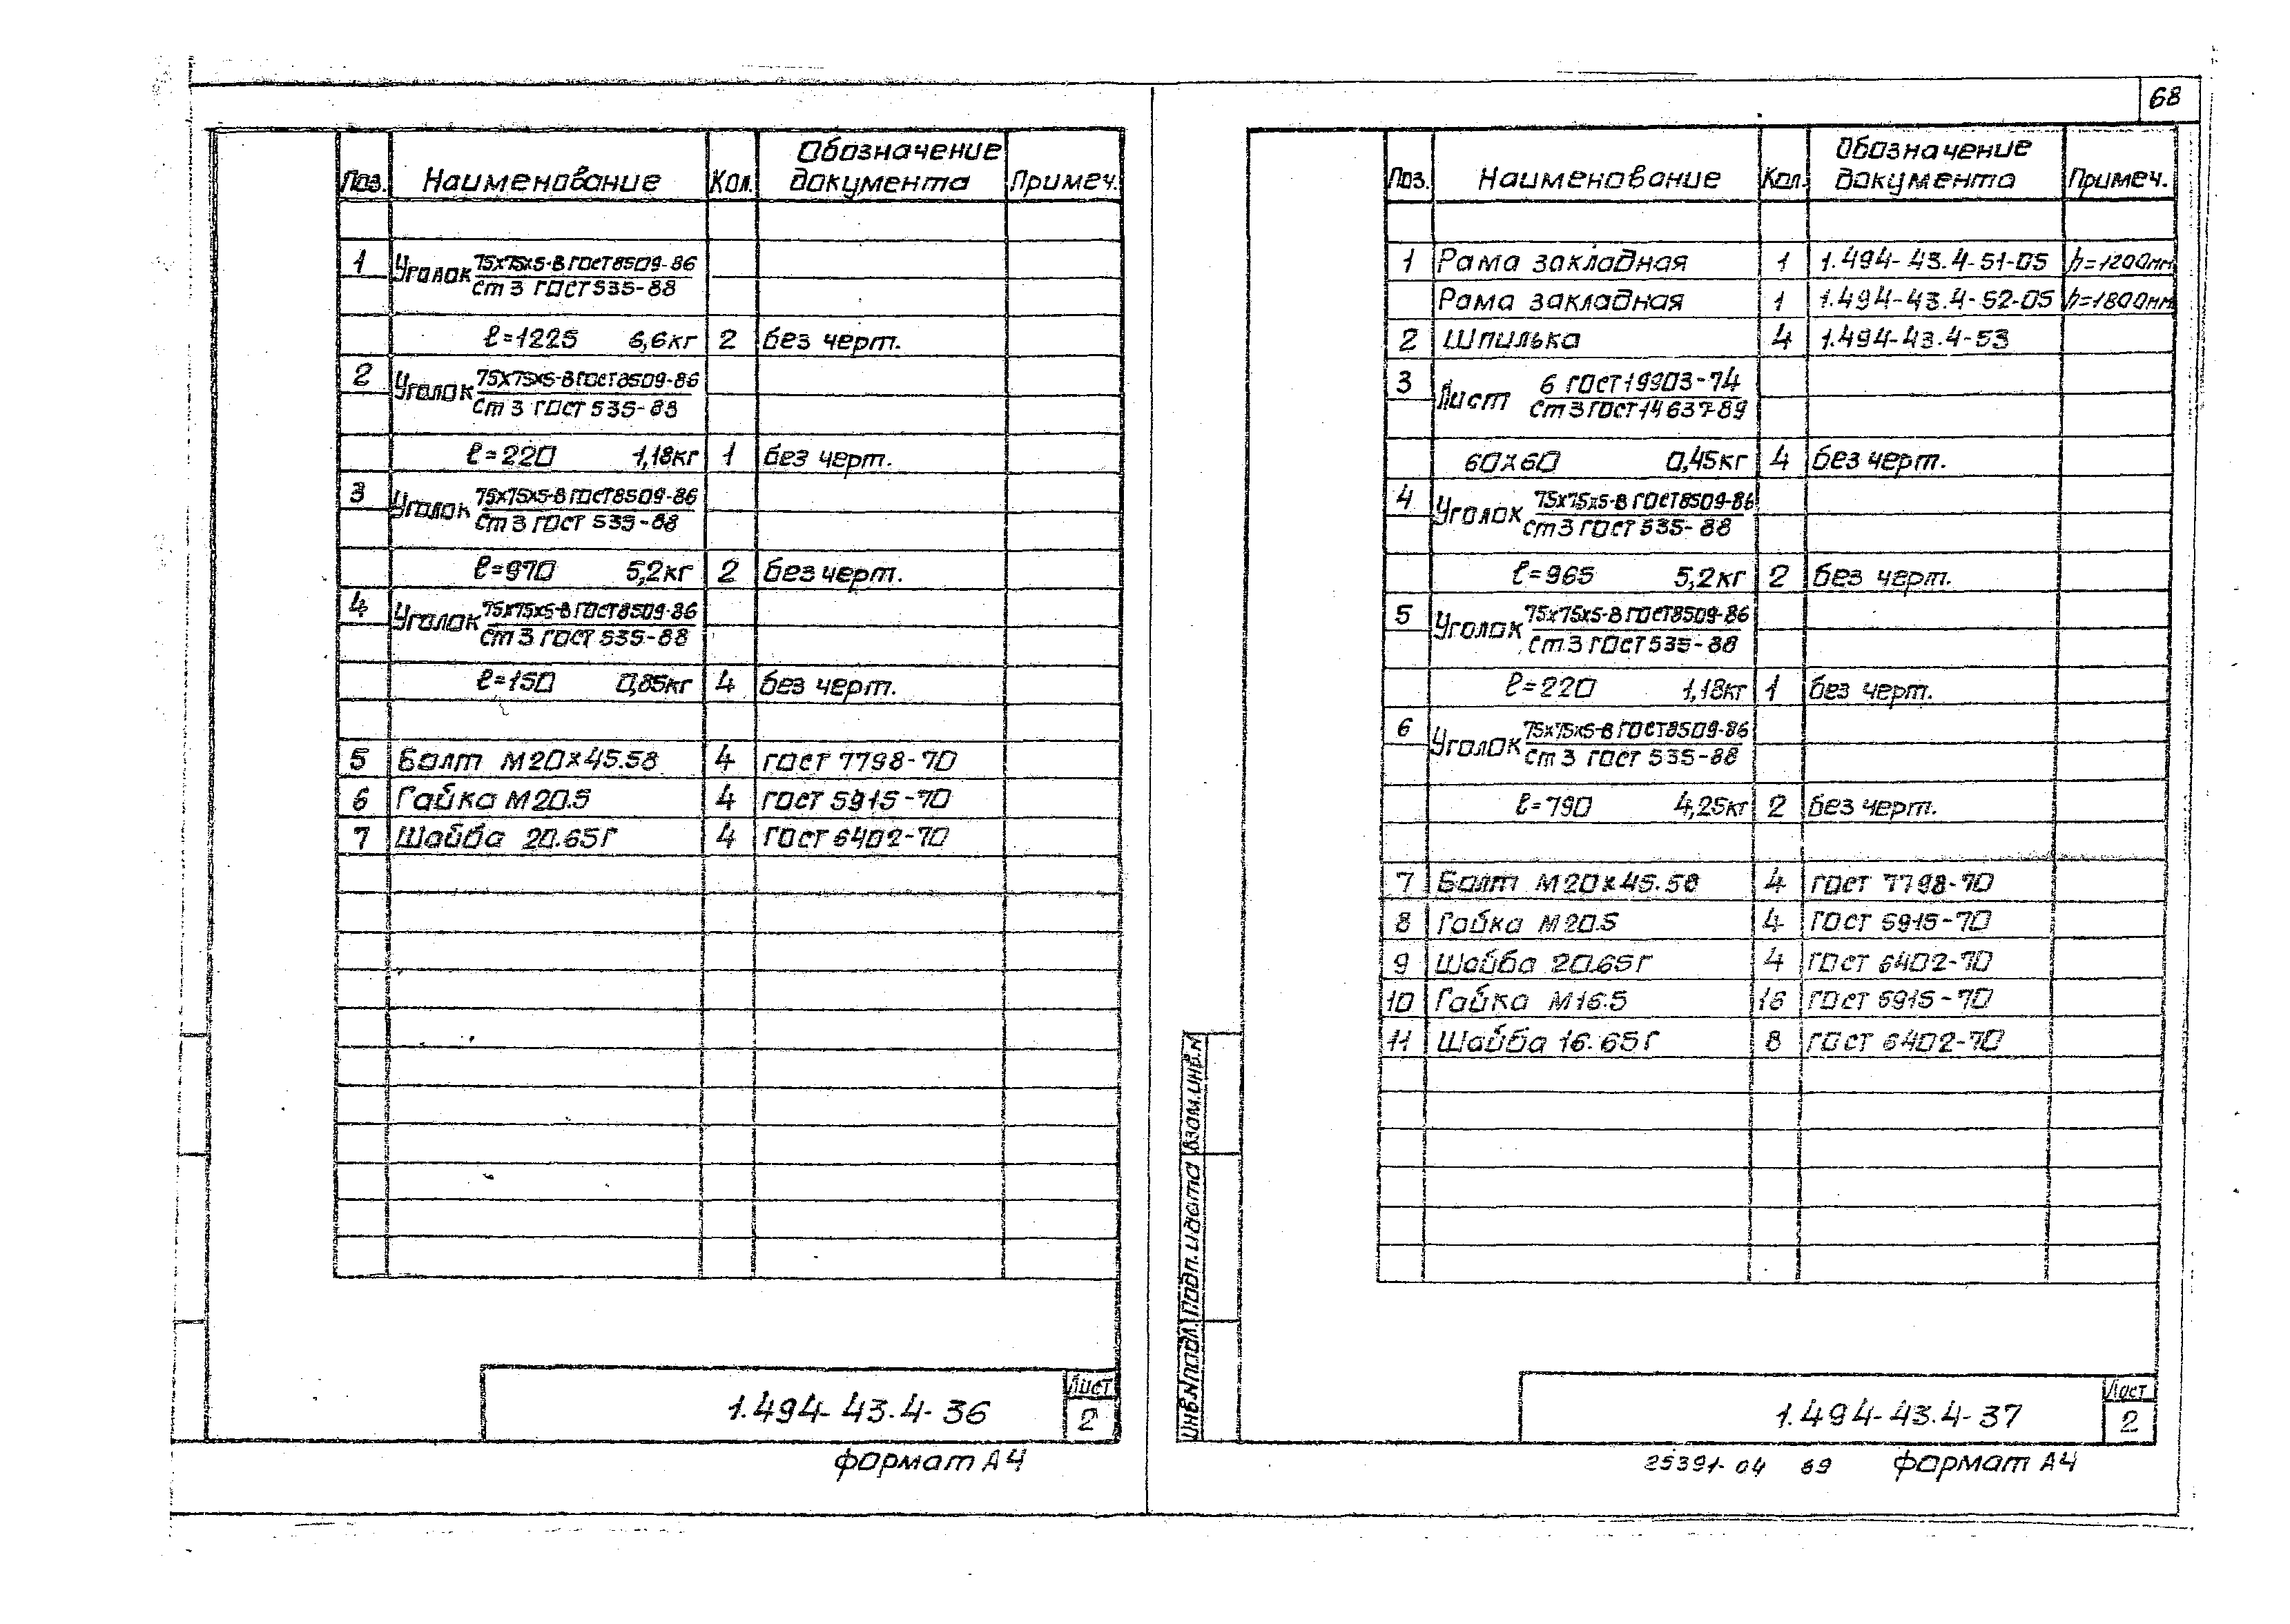 68
Поз. Наименование Кол. Обозначение документа Примеч.
1 Уголок 75х75х5-В ГОСТ 8509-86
Ст 3 ГОСТ 535-88
ℓ=1225 6,6кг 2 без черт.
2 Уголок 75х75х5-В ГОСТ 8509-86
Ст 3 ГОСТ 535-88
ℓ=220 1,18кг 1 без черт.
3 Уголок 75х75х5-В ГОСТ 8509-86
Ст 3 ГОСТ 535-88
ℓ=970 5,2кг 2 без черт.
4 Уголок 75х75х5-В ГОСТ 8509-86
Ст 3 ГОСТ 535-88
ℓ=150 0,85кг 4 без черт.
5 Болт М20х45.58 4 ГОСТ 7798-70
6 Гайка М20.5 4 ГОСТ 5915-70
7 Шайба 20.65Г 4 ГОСТ 6402-70
1.494-43.4-36
Лист
2
формат А4
Поз. Наименование Кол. Обозначение документа Примеч.
1 Рама закладная 1 1.494-43.4-51-05 h=1200мм
Рама закладная 1 1.494-43.4-52-05 h=1800мм
2 Шпилька 4 1.494-43.4-53
3 Лист 6 ГОСТ 19903-74
Ст 3 ГОСТ 14637-89
60х60 0,45кг 4 без черт.
4 Уголок 75х75х5-В ГОСТ 8509-86
Ст 3 ГОСТ 535-88
ℓ=965 5,2кг 2 без черт.
5 Уголок 75х75х5-В ГОСТ 8509-86
Ст 3 ГОСТ 535-88
ℓ=220 1,18кг 1 без черт.
6 Уголок 75х75х5-В ГОСТ 8509-86
Ст 3 ГОСТ 535-88
ℓ=790 4,25кг 2 без черт.
7 Болт М20х45.58 4 ГОСТ 7798-70
8 Гайка М20.5 4 ГОСТ 5915-70
9 Шайба 20.65Г 4 ГОСТ 6402-70
10 Гайка М16.5 16 ГОСТ 5915-70
11 Шайба 16.65Г 8 ГОСТ 6402-70
Инв.N подл. Подп. и дата Взам.инв.N
1.494-43.4-37
Лист
2
25391-04 69 формат А4